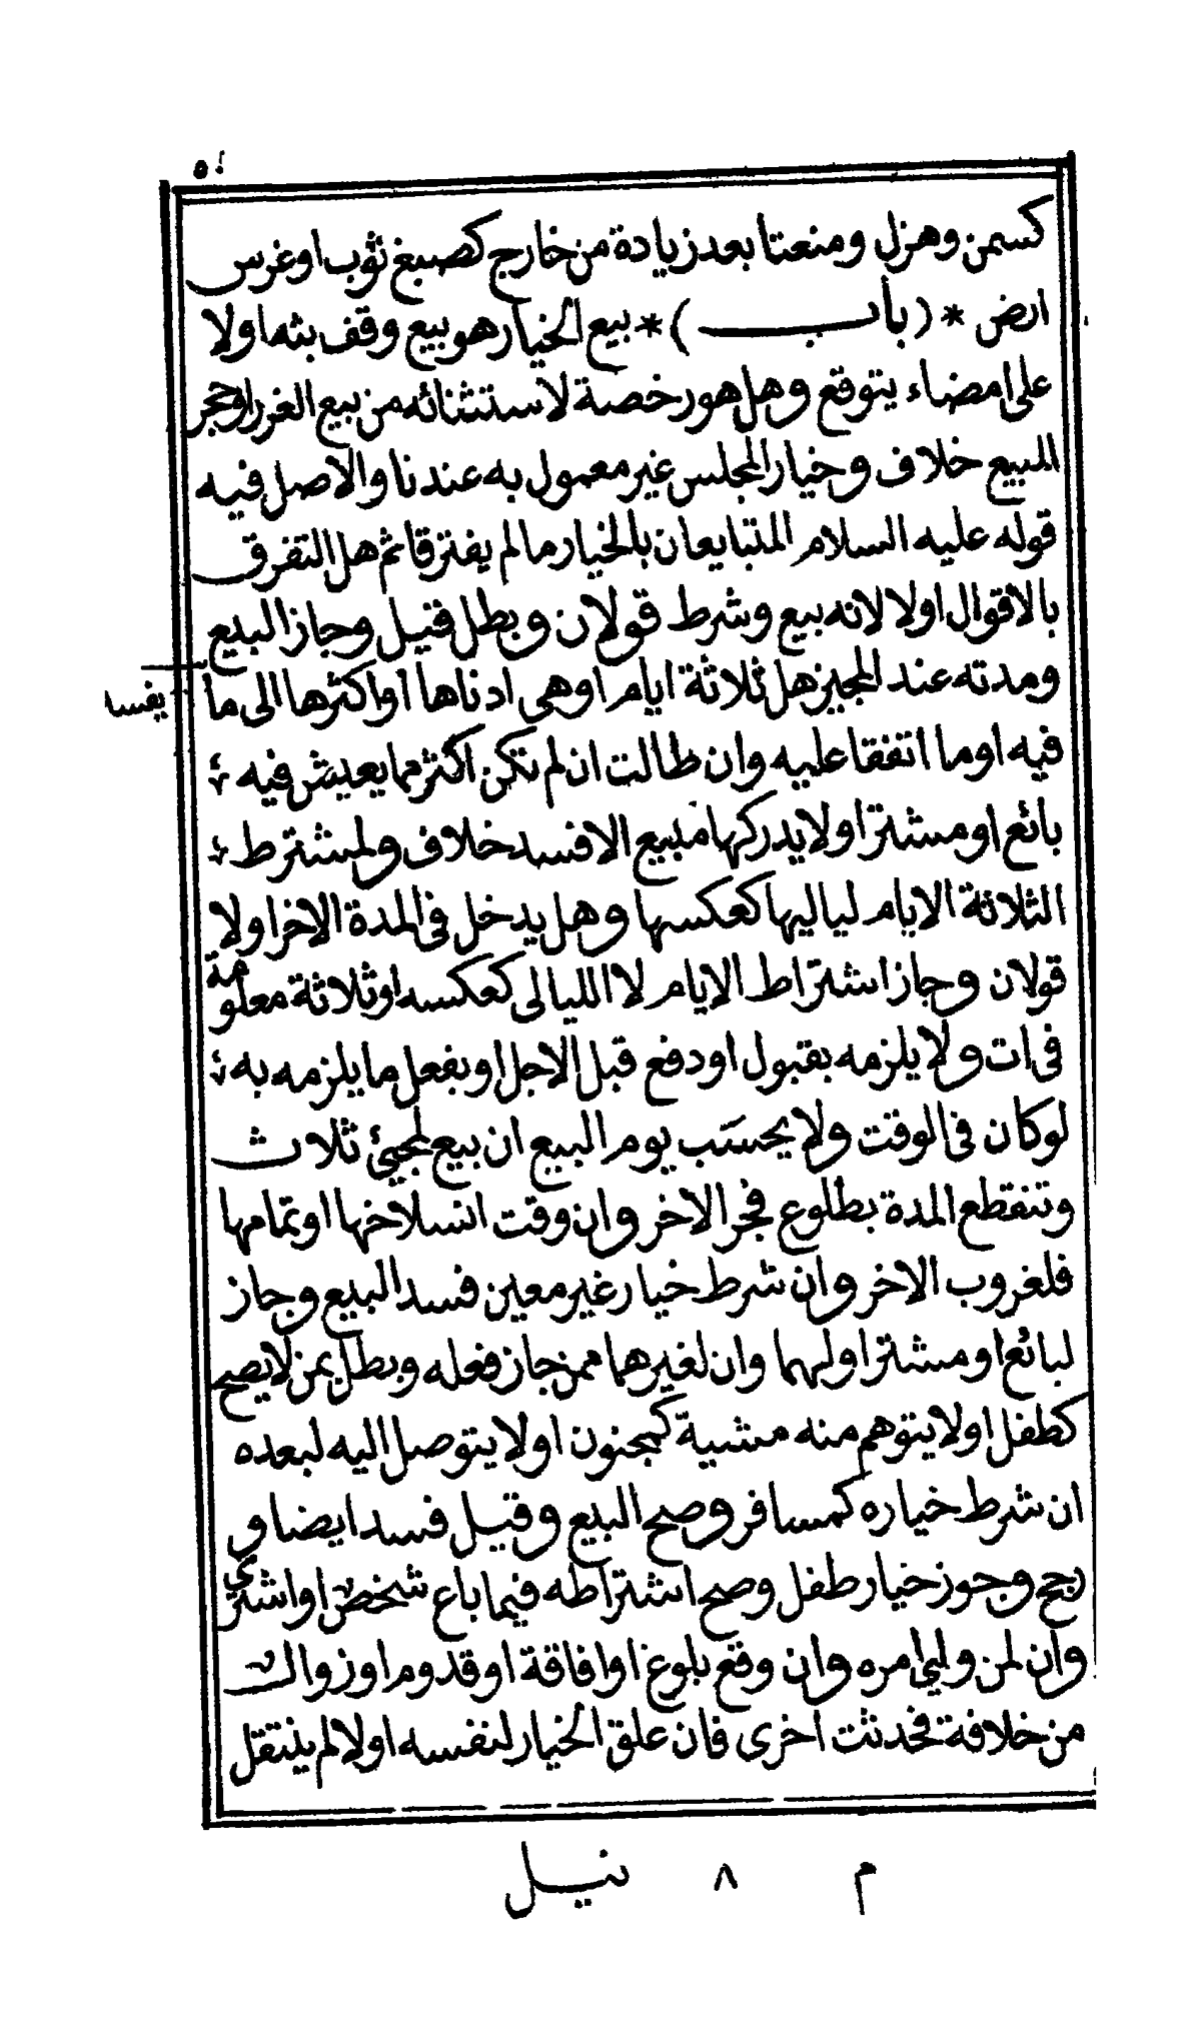 ٥١
كسمن وهزل ومنعتا بعد زيادة من خارج كصبغ ثوب او غرس
ارض * (باب) * بيع الخيار هو بيع وقف بته اولا
على امضاء يتوقع وهل هو رخصة لاستثنائه من بيع الغرر او حجر
المبيع خلاف وخيار المجلس غير معمول به عندنا والاصل فيه
قوله عليه السلام المتبايعان بالخيار ما لم يفترقا ثم هل التفرق
بالاقوال اولا لانه بيع وشرط قولان وبطل قتيل وجاز البيع
ومدته عند المجيز هل ثلاثة ايام او هى ادناها او اكثرها الى ما
يفسد
فيه او ما اتفقا عليه وان طالت ان لم تكن اكثر مما يعيش فيه
بائع او مشتر او لا يدركها مبيع الا فسد خلاف ولمشترط
الثلاثة الايام لياليها كعكسها وهل يدخل فى المدة الاخر اولا
قولان وجاز اشتراط الايام لا الليالى كعكسه او ثلاثة معلومة
فى ات ولا يلزمه بقبول او دفع قبل الاجل او بفعل ما يلزمه به
لو كان فى الوقت ولا يحسَب يوم البيع ان بيع لمجيئ ثلاث
وتنقطع المدة بطلوع فجر الاخر وان وقت انسلاخها او تمامها
فلغروب الاخر وان شرط خيار غير معين فسد البيع وجاز
لبائع او مشتر او لهما وان لغيرهما ممن جاز فعله وبطل بمن لا يصح
كطفل اولا يتوهم منه مشيةّ كمجنون اولا يتوصل اليه لبعده
ان شرط خياره كمسافر وصح البيع وقيل فسد ايضا و
رجح وجوز خيار طفل وصح اشتراطه فيما باع شخص او اشترى
وان لمن ولى امره وان وقع بلوغ او افاقة او قدوم او زوال
من خلافة فحدثت اخرى فان علق الخيار لنفسه اولا لم ينتقل
م ٨ نيل